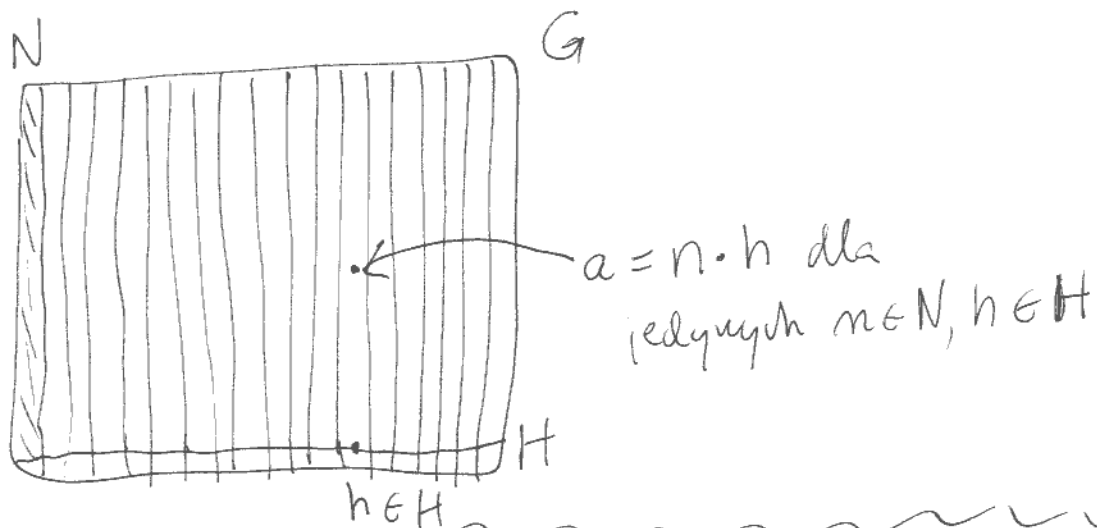 N
G
a = n·h dla
jedynych n∈N, h∈H
H
h∈H